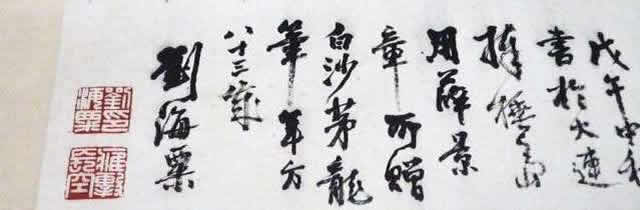 戊午中秋
書於大連
棒棰島
用薛景
章所贈
白沙茅龍
筆年方
八十三歲
劉海粟
劉印海粟